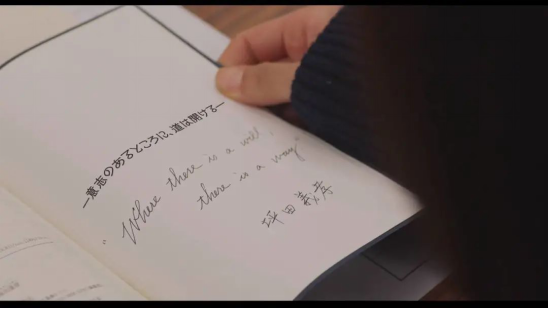 ―意志のあるところに、道は開ける―
"Where there is a will,
there is a way"
坪田義孝